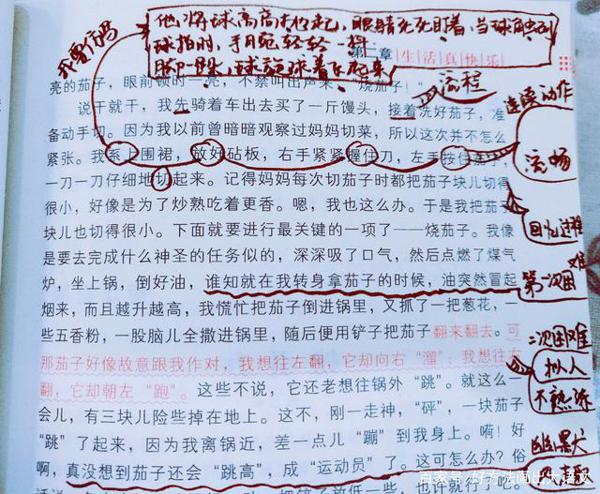 他将球高高抛起，眼睛死死盯着，当球触到
球拍时，手腕轻轻一抖
第二章 生活真快乐
流程
亮的茄子，眼前顿时一亮，不禁叫出声来“烧茄子！”
说干就干，我先骑着车出去买了一斤馒头，接着洗好茄子，准
备动手切。因为我以前曾暗暗观察过妈妈切菜，所以这次并不怎么
紧张。我系上围裙，放好砧板，右手紧紧握住刀，左手按住
一刀一刀仔细地切起来。记得妈妈每次切茄子时都把茄子块儿切得
很小，好像是为了炒熟吃着更香。嗯，我也这么办。于是我把茄子
块儿也切得很小。下面就要进行最关键的一项了——烧茄子。我像
是要去完成什么神圣的任务似的，深深吸了口气，然后点燃了煤气
炉，坐上锅，倒好油，谁知就在我转身拿茄子的时候，油突然冒起
烟来，而且越升越高，我慌忙把茄子倒进锅里，又抓了一把葱花，一
些五香粉，一股脑儿全撒进锅里，随后便用铲子把茄子翻来翻去。可
那茄子好像故意跟我作对，我想往左翻，它却向右“溜”；我想往右
翻，它却朝左“跑”。这些不说，它还老想往锅外“跳”。就这么一
会儿，有三块儿险些掉在地上。这不，刚一走神，“砰”，一块茄子
“跳”了起来，因为我离锅近，差一点儿“蹦”到我身上。唷！好
啊，真没想到茄子还会“跳高”，成“运动员”了。这可怎么办？俗
连续动作
流畅
回忆过程
第一次困难
二次困难
拟人
不熟练
幽默